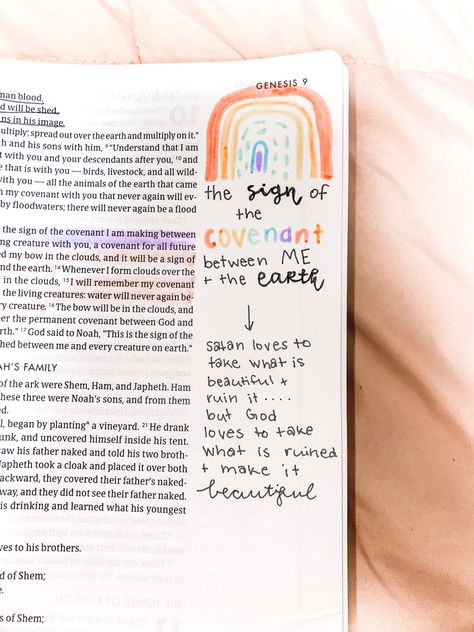 GENESIS 9
man blood,
d will be shed,
ns in his image.
ultiply; spread out over the earth and multiply on it."
h and his sons with him, ⁹ "Understand that I am
t with you and your descendants after you, ¹⁰ and
e that is with you — birds, livestock, and all wild-
with you — all the animals of the earth that came
h my covenant with you that never again will ev-
by floodwaters; there will never again be a flood
the sign of the covenant I am making between
ng creature with you, a covenant for all future
ed my bow in the clouds, and it will be a sign of
nd the earth. ¹⁴ Whenever I form clouds over the
in the clouds, ¹⁵ I will remember my covenant
the living creatures: water will never again be-
ry creature. ¹⁶ The bow will be in the clouds, and
er the permanent covenant between God and
rth." ¹⁷ God said to Noah, "This is the sign of the
shed between me and every creature on earth."
AH'S FAMILY
of the ark were Shem, Ham, and Japheth. Ham
hese three were Noah's sons, and from them
ed.
l, began by planting^ a vineyard. ²¹ He drank
unk, and uncovered himself inside his tent.
saw his father naked and told his two broth-
Japheth took a cloak and placed it over both
ackward, they covered their father's naked-
way, and they did not see their father naked.
is drinking and learned what his youngest
ves to his brothers.
d of Shem;
e.
s of Shem;
the sign of
the
covenant
between ME
+ the earth
↓
satan loves to
take what is
beautiful +
ruin it ....
but God
loves to take
what is ruined
+ make it
beautiful